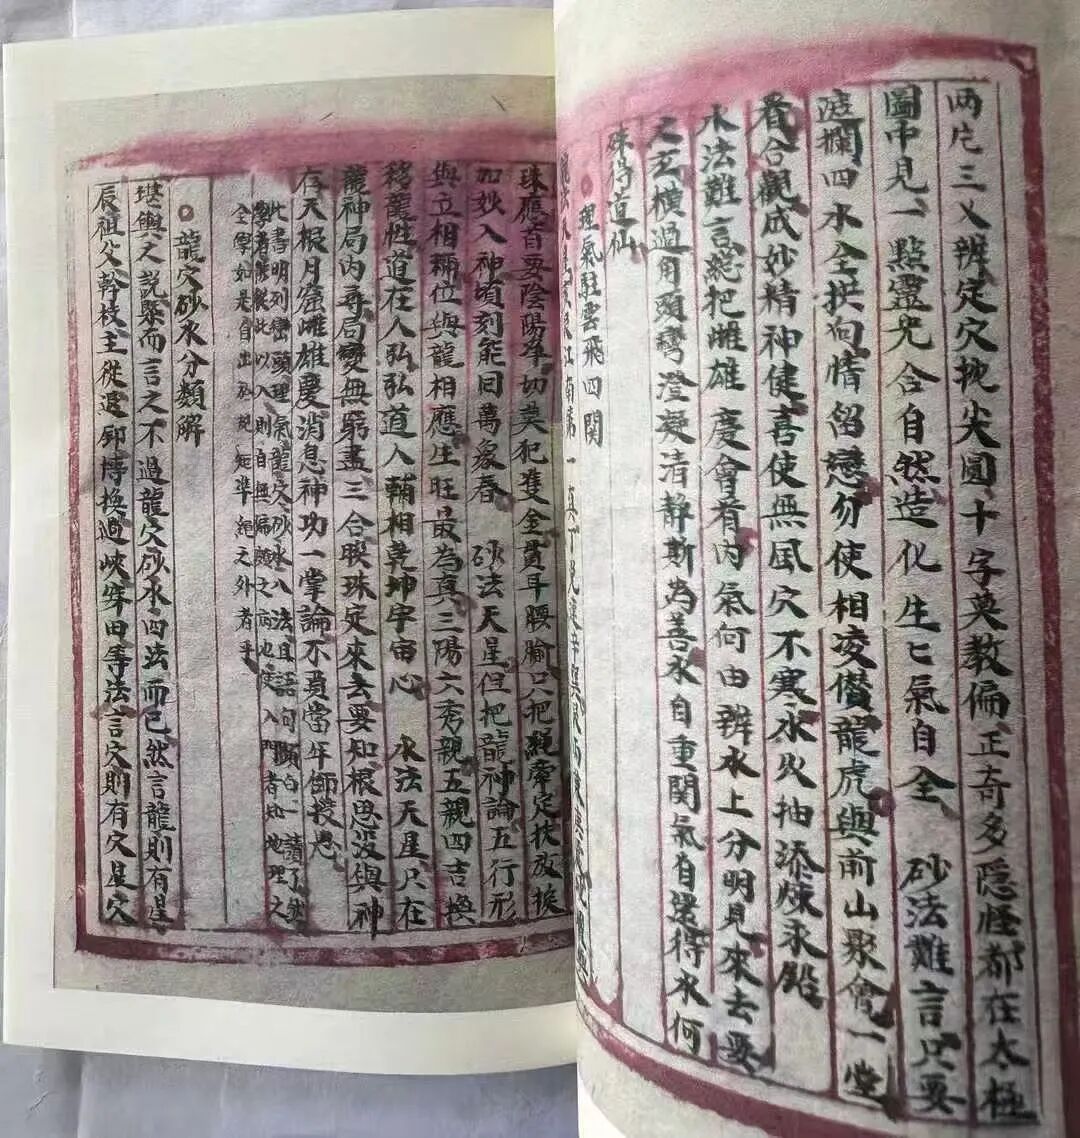 两片三乂辨定穴扰尖圓十字莫教偏正奇多隱怪都在太極
圖中見一點靈光合自然造化生七氣自全 砂法難言只要
遮攔四水全拱向情留戀勿使相凌僣龍虎與前山聚會一堂
看合觀成妙精神健喜使無風穴不寒水火抽添煉汞鉛
水法難言總把雌雄慶會肴内氣何由辨水上分明見來去要
之玄横過用頭彎澄凝清静斯為善水自重関氣自還得水何
殊待道仙
理氣駐雲飛四関
江南第一真
珠應首要陰陽牽切莫犯隻金貫耳腰腧只把繩牽定扶放挨
加妙入神頃刻能回萬象春 砂法天星但把龍神論五行形
與立相稱位與龍相應生旺最為真三陽六秀親五親四吉換
移龍性道在人弘弘道人輔相乾坤宇宙心 水法天星只在
龍神局内尋局變無窮盡三合聯珠定來去要知根思没與神
存天根月窟雌雄慶消息神功一掌論不負當年師授恩
此書明列巒頭理氣龍穴砂水八法且語句顯白一讀了然
學者熊從此以入則自無偏頗之病也使入門者知地理之
全學如是自出於規矩準繩之外者乎
龍穴砂水分類解
堪輿之説槩而言之不過龍穴砂水四法而已然言龍則有星
辰祖父幹枝主從退卸博換過峽穿田等法言穴則有穴星穴